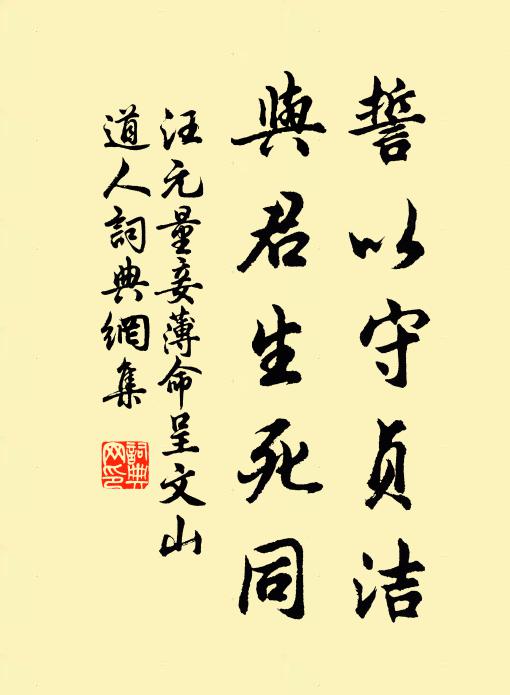 誓以守贞洁
與君生死同
汪元量妾薄命呈文山
道人詞典網集
詞典
网印